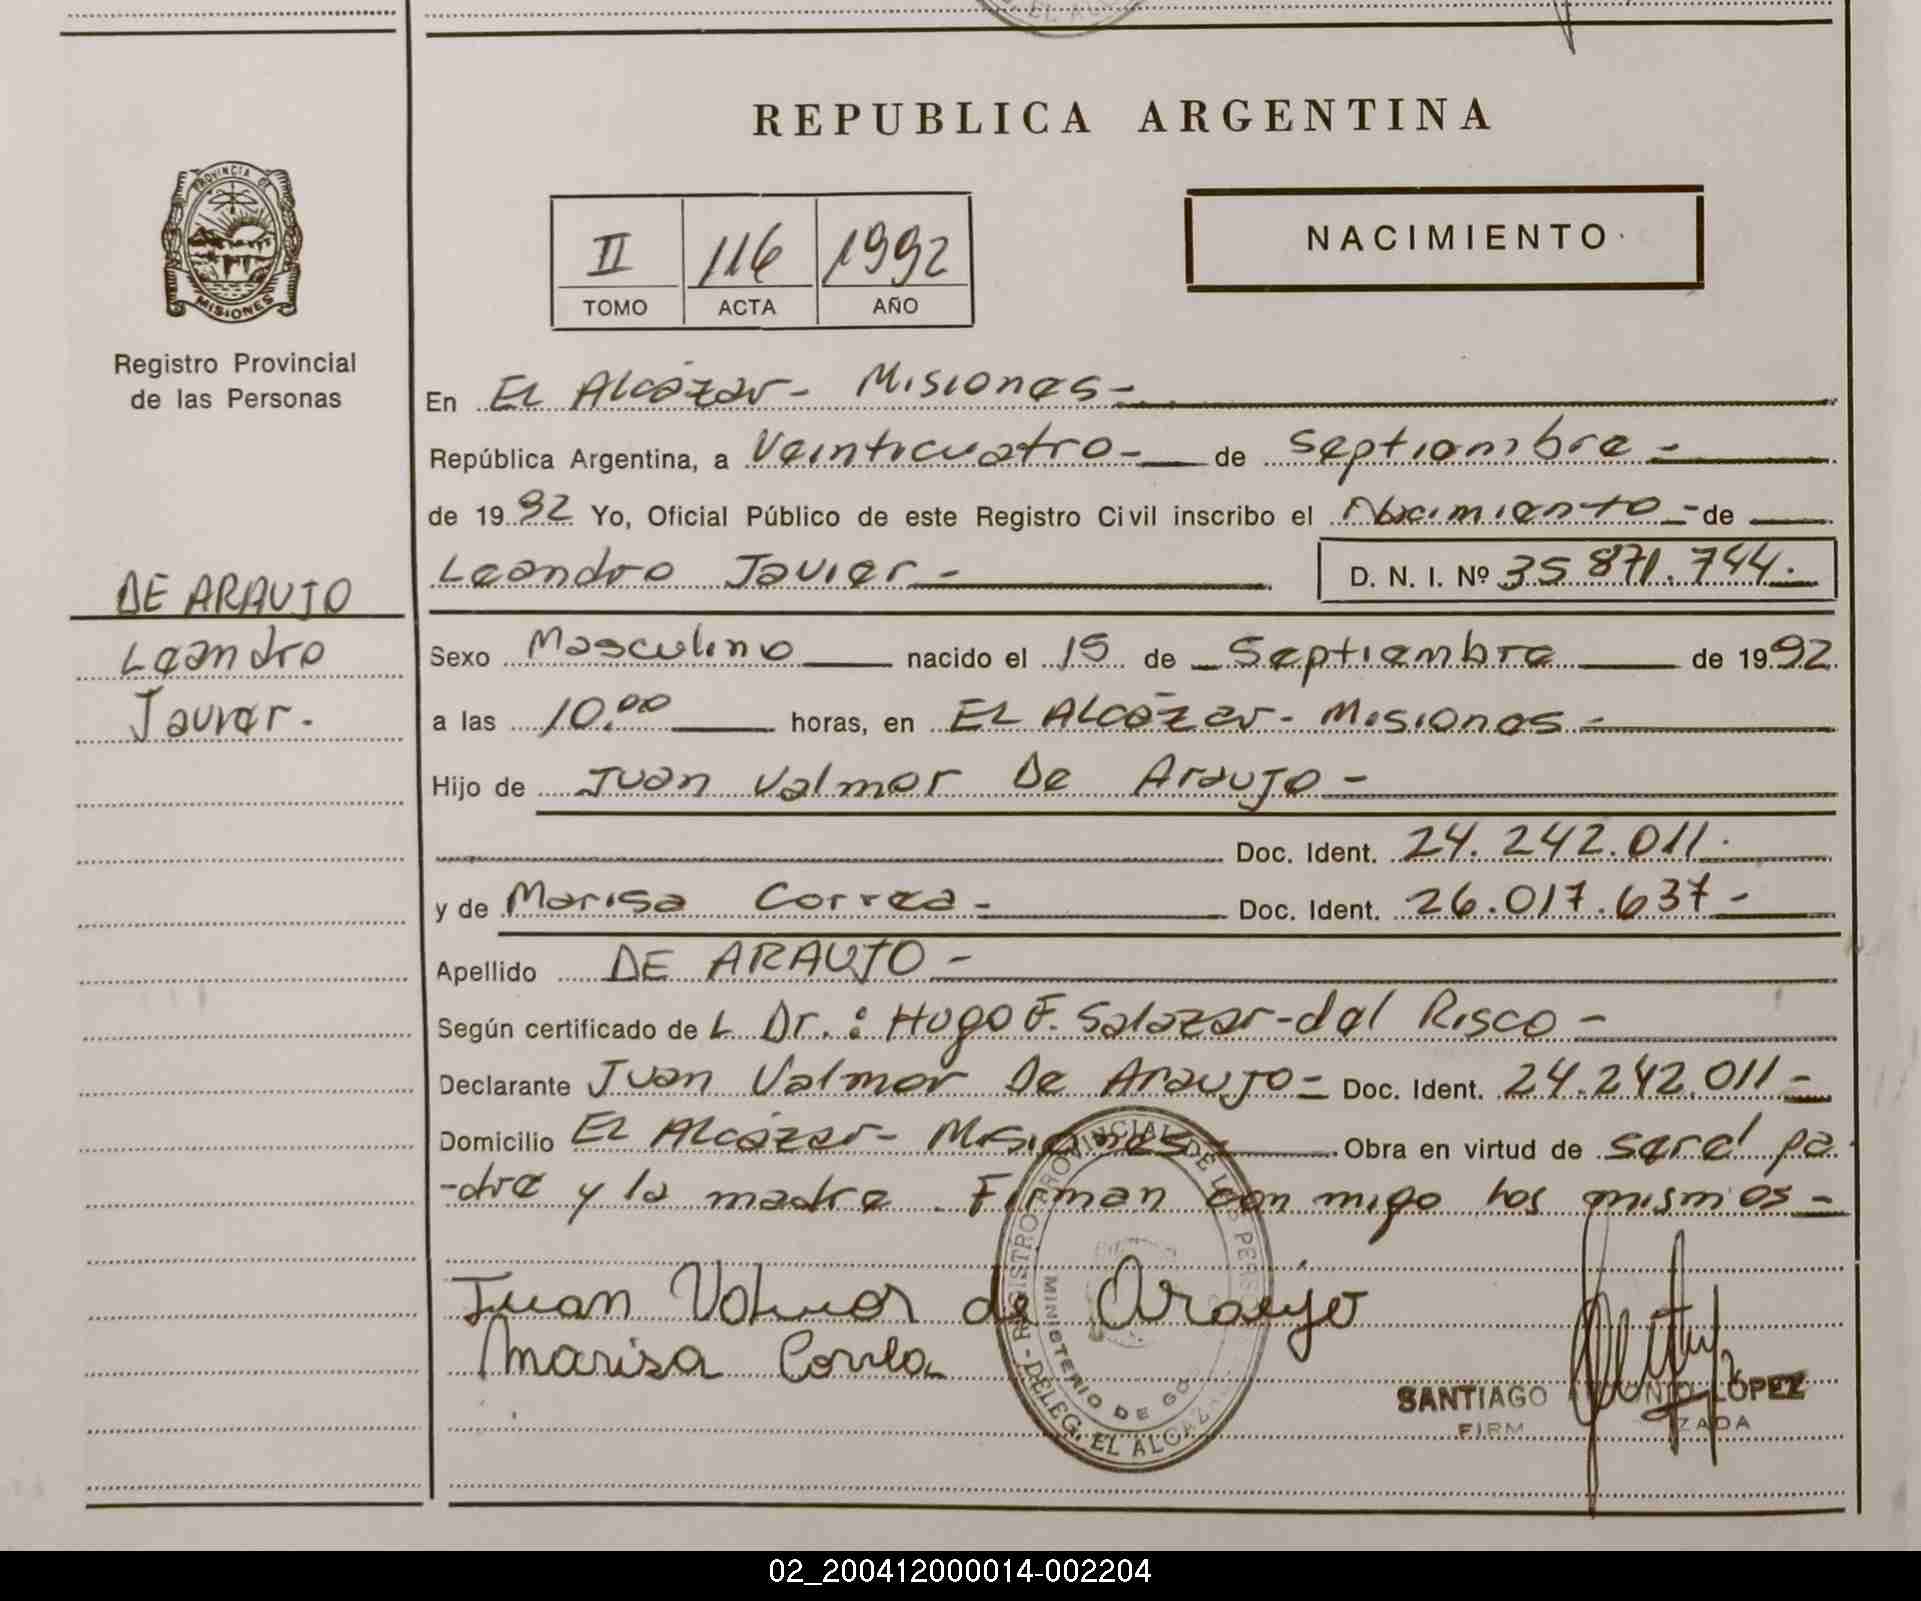 REPUBLICA ARGENTINA
PROVINCIA DE
MISIONES
Registro Provincial
de las Personas
II 116 1992
TOMO ACTA AÑO
NACIMIENTO
En El Alcázar - Misiones -
República Argentina, a Veinticuatro - de Septiembre -
de 1992 Yo, Oficial Público de este Registro Civil inscribo el Nacimiento - de
Leandro Javier - D. N. I. Nº 35 871.744.
DE ARAUJO
Leandro
Javier.
Sexo Masculino nacido el 15 de Septiembre de 1992
a las 10.00 horas, en El Alcázar - Misiones -
Hijo de Juan Valmor De Araujo -
Doc. Ident. 24.242.011.
y de Marisa Correa - Doc. Ident. 26.017.637 -
Apellido DE ARAUJO -
Según certificado de L Dr.: Hugo F. Salazar - del Risco -
Declarante Juan Valmor De Araujo - Doc. Ident. 24.242.011 -
Domicilio El Alcázar - Misiones - Obra en virtud de ser el pa-
-dre y la madre. Firman con migo los mismos -
Juan Valmor de Araujo
Marisa Correa
REGISTRO PROVINCIAL DE LAS PERSO
MINISTERIO DE GO
- DELEG. EL ALCAZA
SANTIAGO ANTONIO LOPEZ
FIRM ZADA
02_200412000014-002204